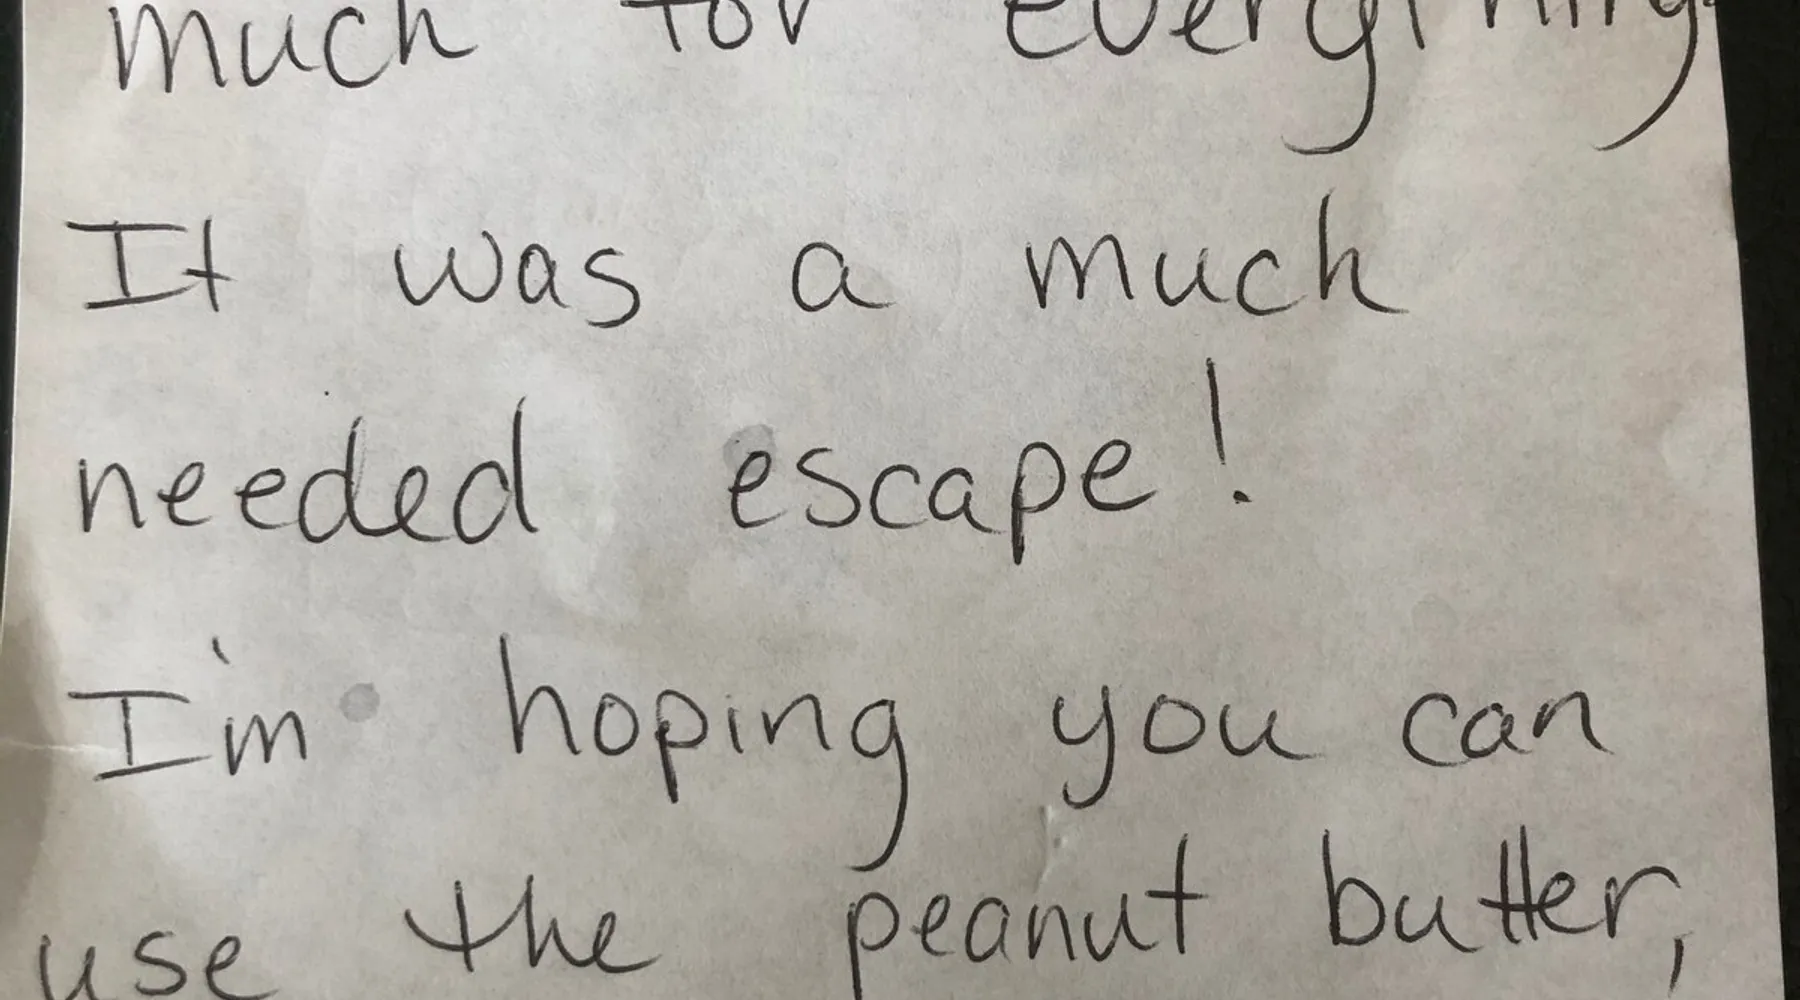 much for everything.
It was a much
needed escape!
I'm hoping you can
use the peanut butter,